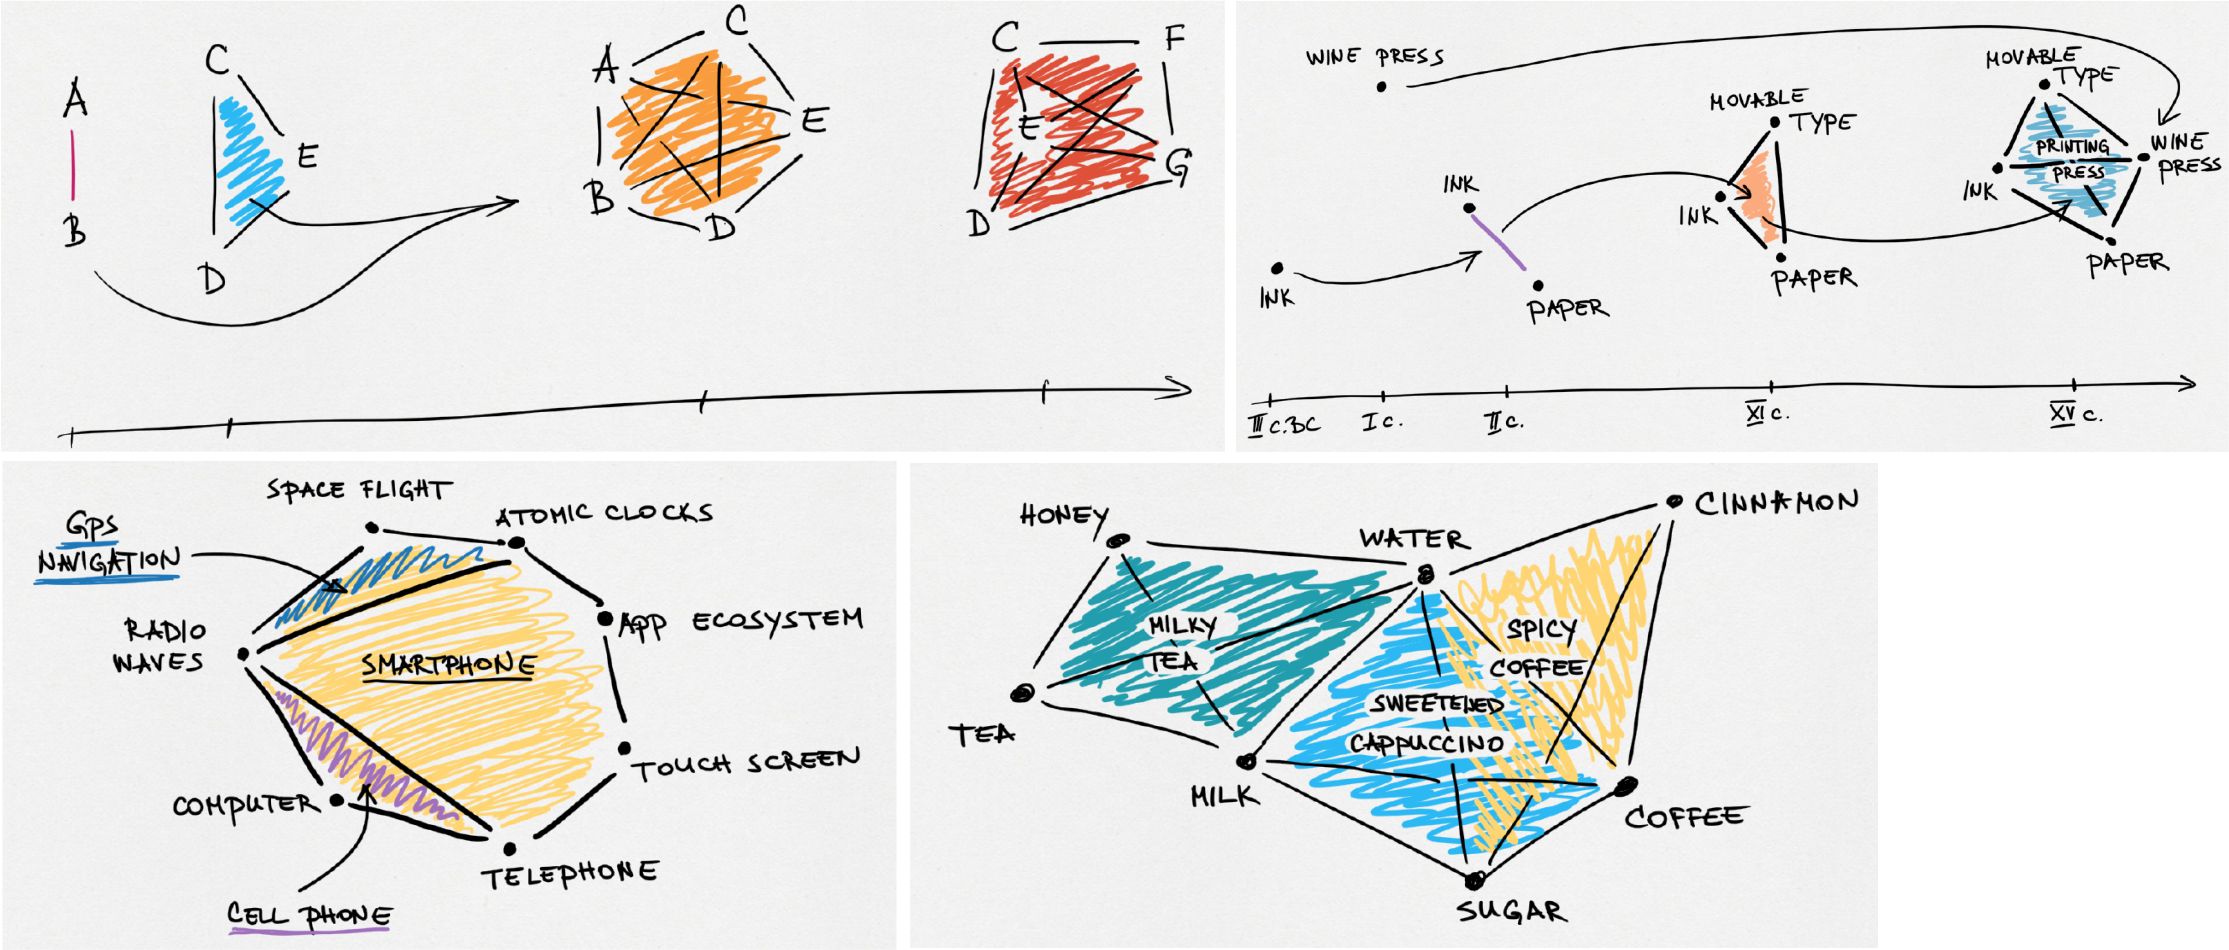 A
B
C
E
D
A
C
E
B
D
C
F
E
G
D
WINE PRESS
INK
INK
PAPER
MOVABLE
TYPE
INK
PAPER
MOVABLE
TYPE
PRINTING
PRESS
WINE
PRESS
INK
PAPER
III C. BC
I C.
II C.
XI C.
XV C.
SPACE FLIGHT
GPS
NAVIGATION
ATOMIC CLOCKS
RADIO
WAVES
APP ECOSYSTEM
SMARTPHONE
TOUCH SCREEN
COMPUTER
TELEPHONE
CELL PHONE
HONEY
WATER
CINNAMON
MILKY
TEA
SPICY
COFFEE
SWEETENED
CAPPUCCINO
TEA
MILK
COFFEE
SUGAR